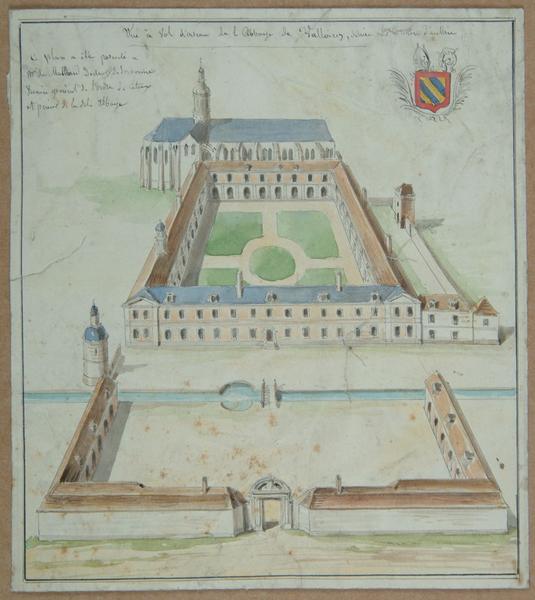 Vue à Vol d'oiseau de l'Abbaye de Valloires,
Ce plan a été présenté a
Mr de Docteur de Sorbonne
Vicaire général de l'ordre de Citeaux
et prieur de la dite Abbaye